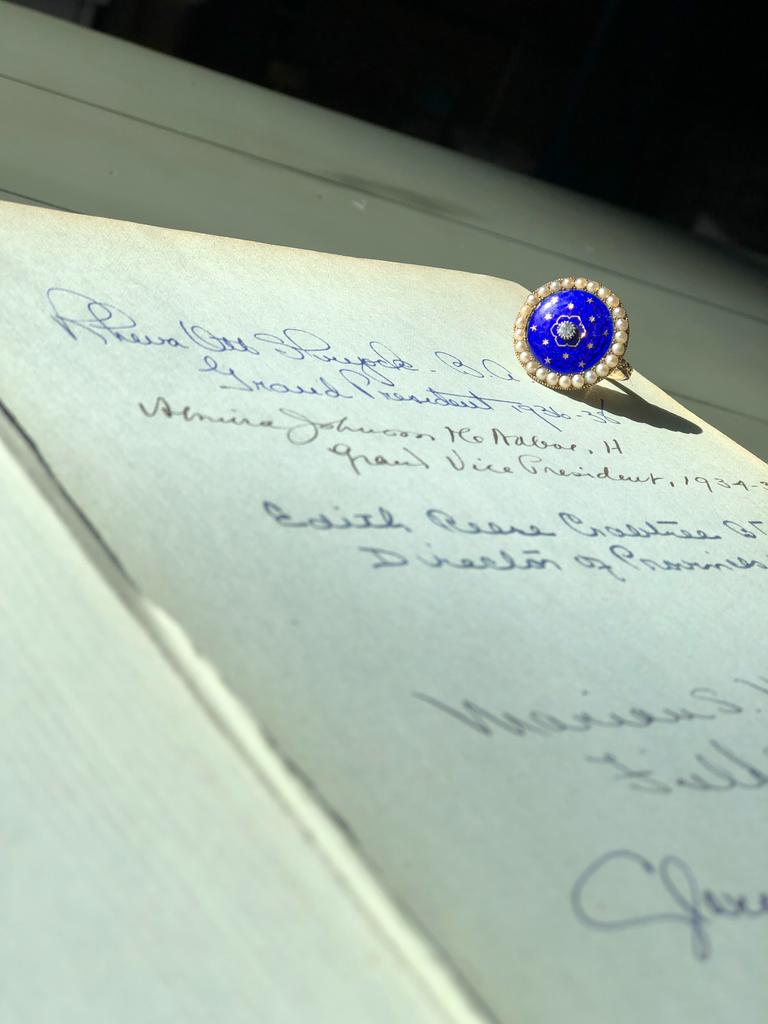 Rheva Ott Shryock. B.A
Grand President 1936-38
Almira Johnson McNaboe, H
Grand Vice President, 1934-3
Edith Reese Crabtree BΓ
Director of Provinces
Marian S.